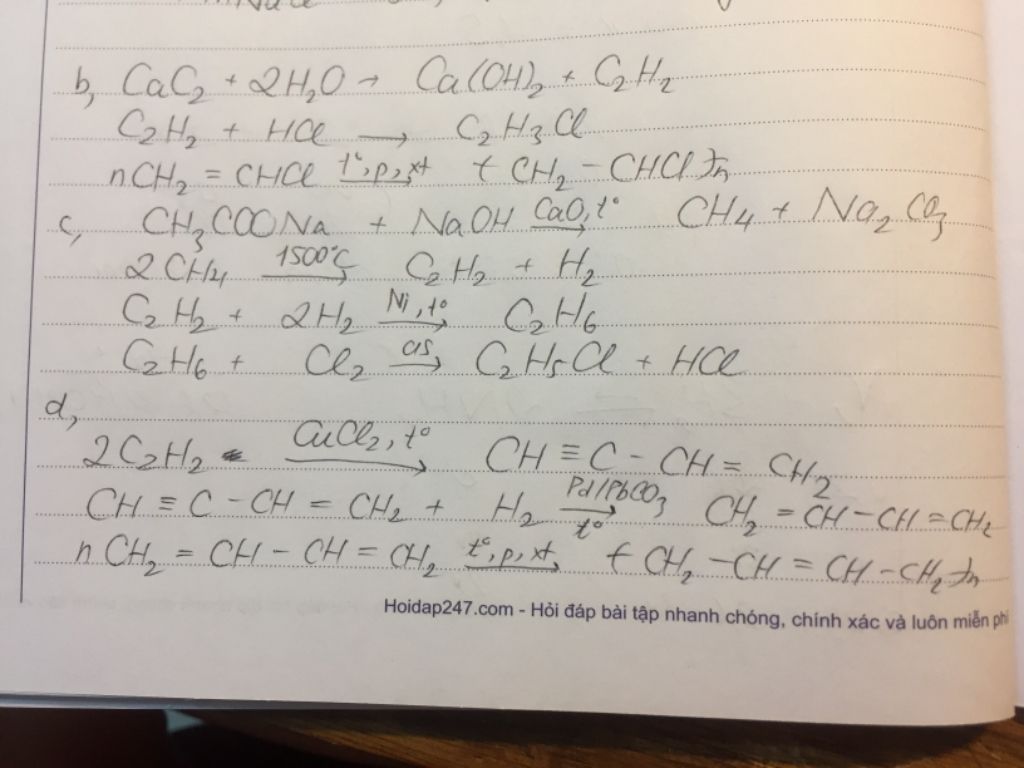 b, CaC₂ + 2H₂O → Ca(OH)₂ + C₂H₂
C₂H₂ + HCl → C₂H₃Cl
nCH₂ = CHCl t°,p,xt → (CH₂ – CHCl)n
c, CH₃COONa + NaOH CaO,t° → CH₄ + Na₂CO₃
2CH₄ 1500°C → C₂H₂ + H₂
C₂H₂ + 2H₂ Ni,t° → C₂H₆
C₂H₆ + Cl₂ as → C₂H₅Cl + HCl
d,
2C₂H₂ CuCl₂,t° → CH ≡ C – CH = CH₂
CH ≡ C – CH = CH₂ + H₂ Pd/PbCO₃ → t° CH₂ = CH – CH = CH₂
nCH₂ = CH – CH = CH₂ t°,p,xt → (CH₂ – CH = CH – CH₂)n
Hoidap247.com - Hỏi đáp bài tập nhanh chóng, chính xác và luôn miễn phí